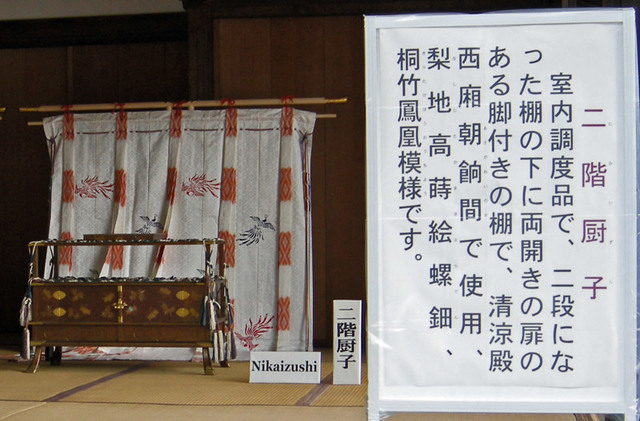 二階厨子
室内調度品で、二段にな
った棚の下に両開きの扉の
ある脚付きの棚で、清涼殿
西廂朝餉間で使用、
梨地高蒔絵螺鈿、
桐竹鳳凰模様です。
二階厨子
Nikaizushi